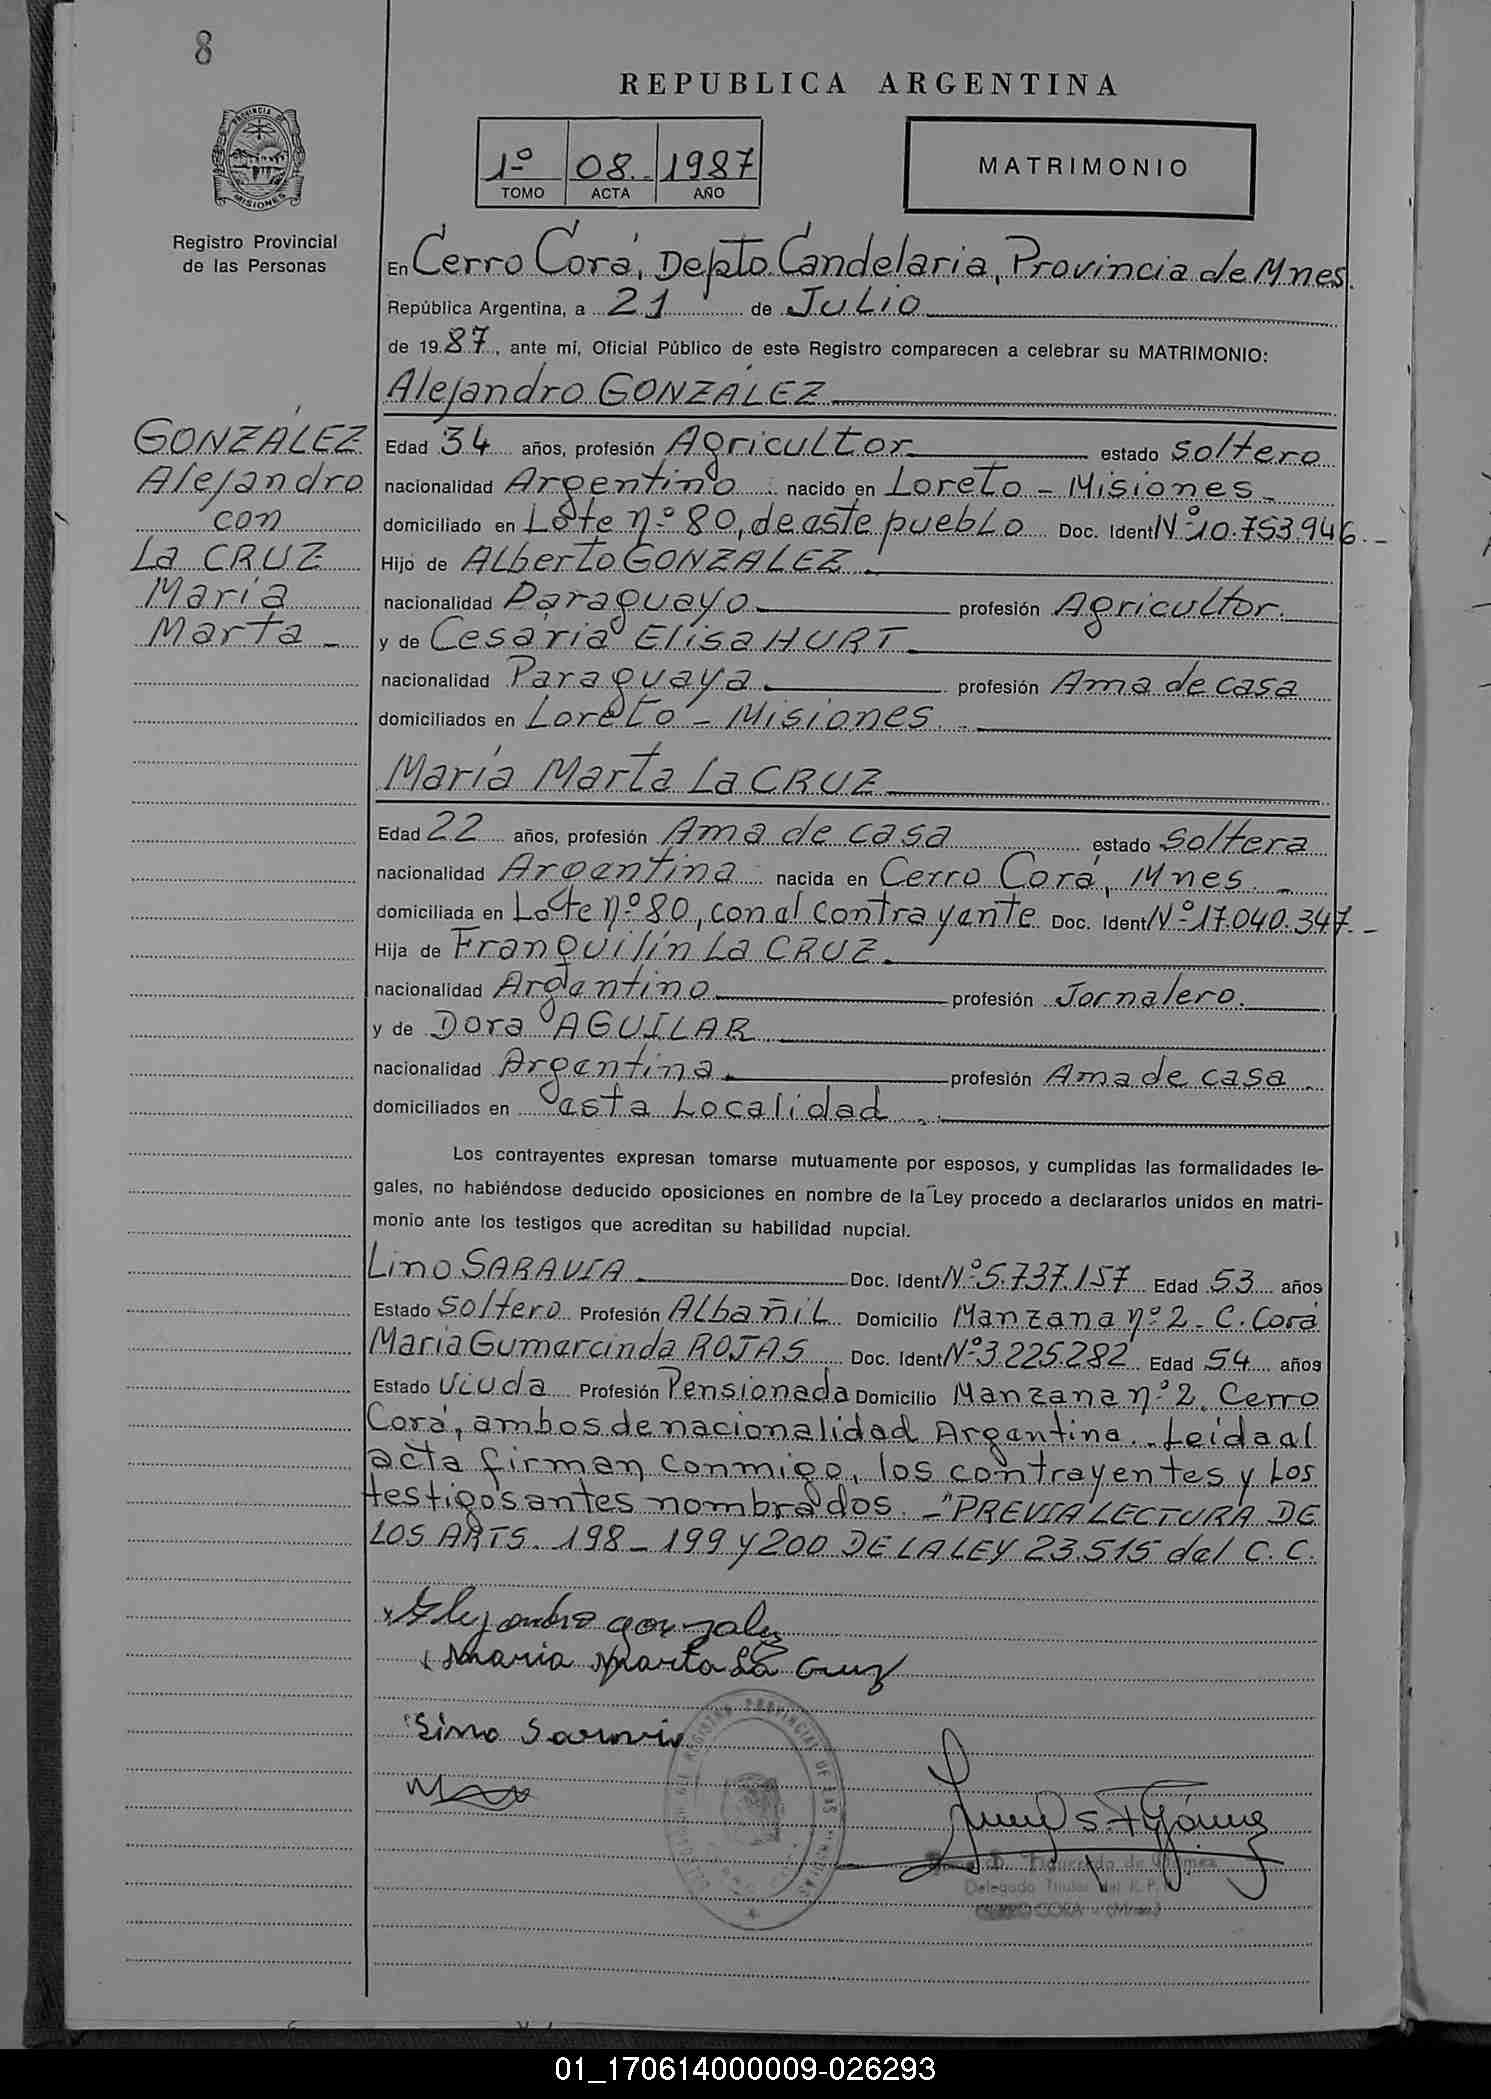 8
REPUBLICA ARGENTINA
PROVINCIA DE
MISIONES
1º 08 1987
TOMO ACTA AÑO
MATRIMONIO
Registro Provincial
de las Personas
En Cerro Corá, Depto. Candelaria, Provincia de Mnes.
República Argentina, a 21 de JULIO
de 1987, ante mí, Oficial Público de este Registro comparecen a celebrar su MATRIMONIO:
Alejandro GONZÁLEZ
GONZÁLEZ
Alejandro
con
La CRUZ
María
Marta -
Edad 34 años, profesión Agricultor estado soltero
nacionalidad Argentino nacido en Loreto - Misiones -
domiciliado en Lote n.º 80, de este pueblo Doc. Ident Nº 10.753.946.-
Hijo de Alberto GONZALEZ.
nacionalidad Paraguayo profesión Agricultor.
y de Cesaria Elisa HURT
nacionalidad Paraguaya. profesión Ama de casa
domiciliados en Loreto - Misiones.
María Marta La CRUZ
Edad 22 años, profesión Ama de casa estado soltera
nacionalidad Argentina nacida en Cerro Corá, Mnes. -
domiciliada en Lote n.º 80, con el contrayente Doc. Ident Nº 17.040.347.-
Hija de Franquilín La CRUZ.
nacionalidad Argentino profesión Jornalero.
y de Dora AGUILAR
nacionalidad Argentina. profesión Ama de casa.
domiciliados en esta Localidad.
Los contrayentes expresan tomarse mutuamente por esposos, y cumplidas las formalidades le-
gales, no habiéndose deducido oposiciones en nombre de la Ley procedo a declararlos unidos en matri-
monio ante los testigos que acreditan su habilidad nupcial.
Lino SARAVIA Doc. Ident Nº 5.737.157 Edad 53 años
Estado soltero Profesión Albañil Domicilio Manzana nº 2 - C. Corá
María Gumarcinda ROJAS Doc. Ident Nº 3.225.282 Edad 54 años
Estado viuda Profesión Pensionada Domicilio Manzana nº 2, Cerro
Corá, ambos de nacionalidad Argentina. - Leida el
acta firman conmigo, los contrayentes y los
testigos antes nombrados. - "PREVIA LECTURA DE
LOS ARTS. 198 - 199 y 200 DE LA LEY 23.515 del C. C.
Alejandro gonzalez
Maria Marta La Cruz
Lino Saravia
DEL REGISTRO PROVINCIAL DE LAS PERSONAS
Figueredo de Gómez
Delegado Titular del R. P.
CERRO CORA - (Mnes)
01_170614000009-026293